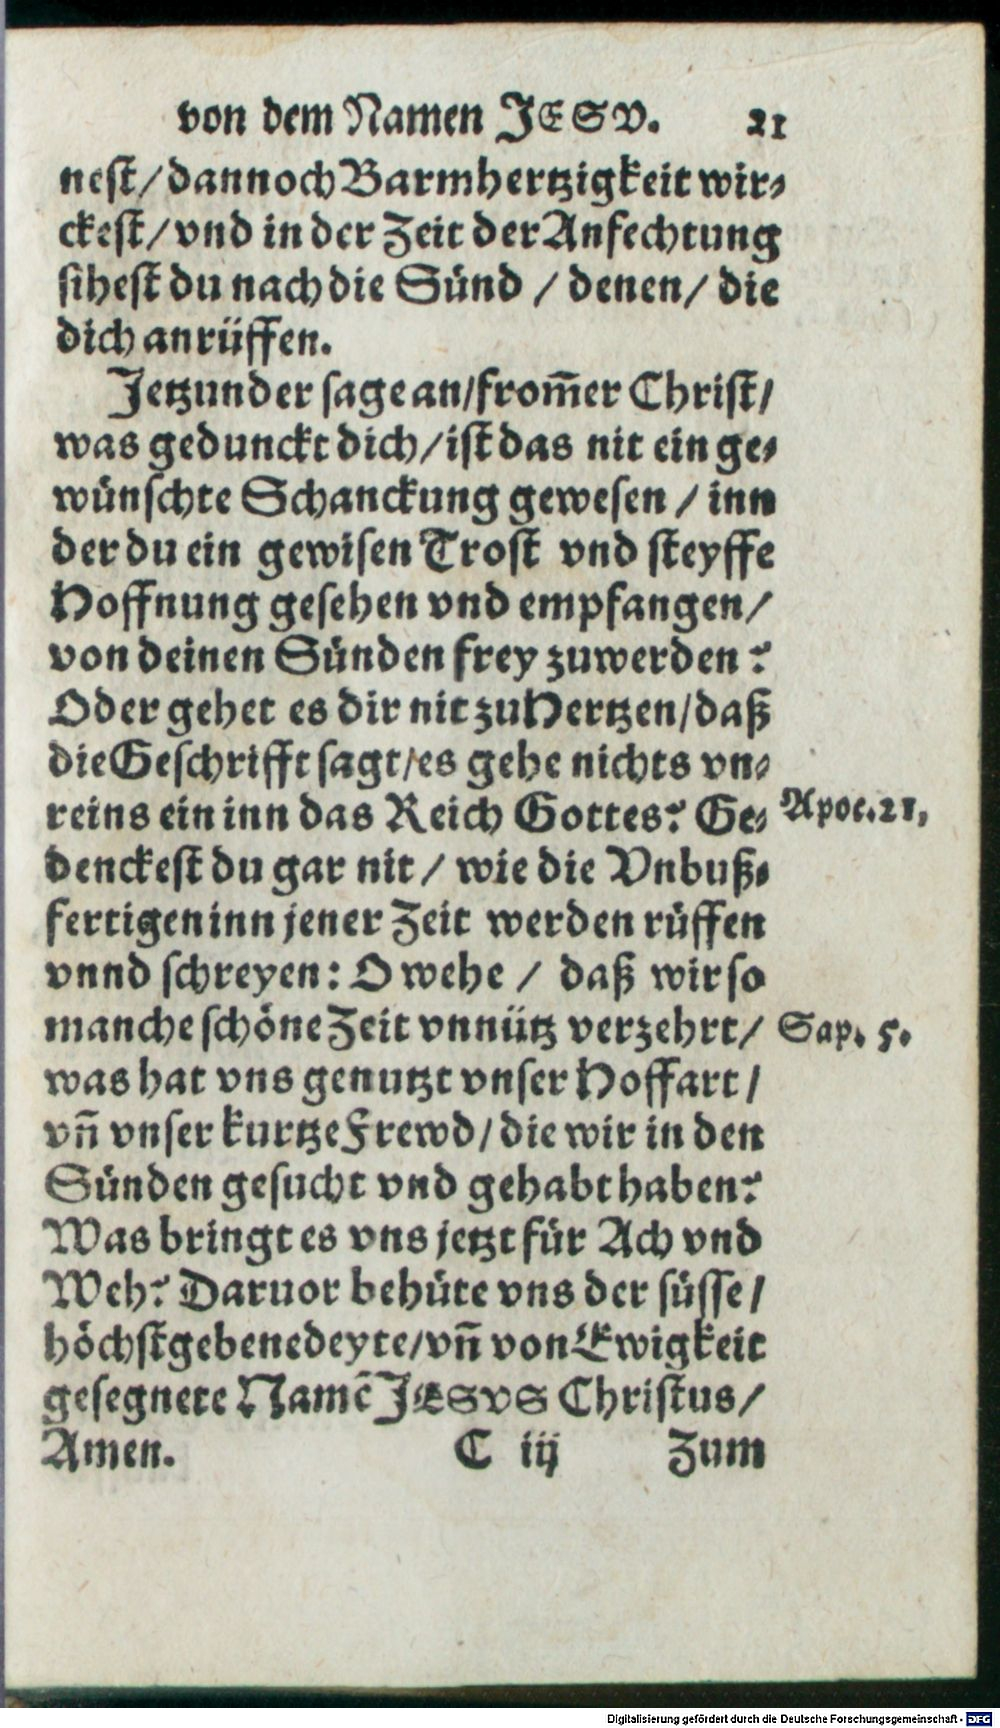 von dem Namen JESV. 21
nest/dannoch Barmhertzigkeit wir-
ckest/vnd in der Zeit der Anfechtung
sihest du nach die Sünd / denen/ die
dich anrüffen.
Jetzunder sage an/from̃er Christ/
was gedunckt dich/ist das nit ein ge-
wünschte Schanckung gewesen / inn
der du ein gewisen Trost vnd steyffe
Hoffnung gesehen vnd empfangen/
von deinen Sünden frey zuwerden?
Oder gehet es dir nit zu Hertzen/daß
die Geschrifft sagt/es gehe nichts vn-
reins ein inn das Reich Gottes? Ge- Apoc.21,
denckest du gar nit / wie die Vnbuß-
fertigen inn jener Zeit werden rüffen
vnnd schreyen: O wehe / daß wir so
manche schöne Zeit vnnütz verzehrt/ Sap. 5.
was hat vns genutzt vnser Hoffart/
vñ vnser kurtze Frewd/die wir in den
Sünden gesucht vnd gehabt haben?
Was bringt es vns jetzt für Ach vnd
Weh? Daruor behüte vns der süsse/
höchstgebenedeyte/vñ von Ewigkeit
gesegnete Namẽ JESVS Christus/
Amen. C iij Zum
Digitalisierung gefördert durch die Deutsche Forschungsgemeinschaft - DFG